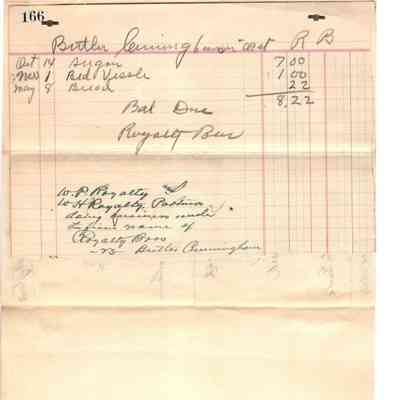 166
Butler Cunningham acct R B
Oct 14 Sugar 7 00
Nov 1 Bed Vessle 1 00
May 8 22
8,22
Bal Due
Royalty Bros
W. P. Royalty
W H Royalty, Partners
doing business under
firm name of
Royalty Bros
- vs - Butler Cunningham